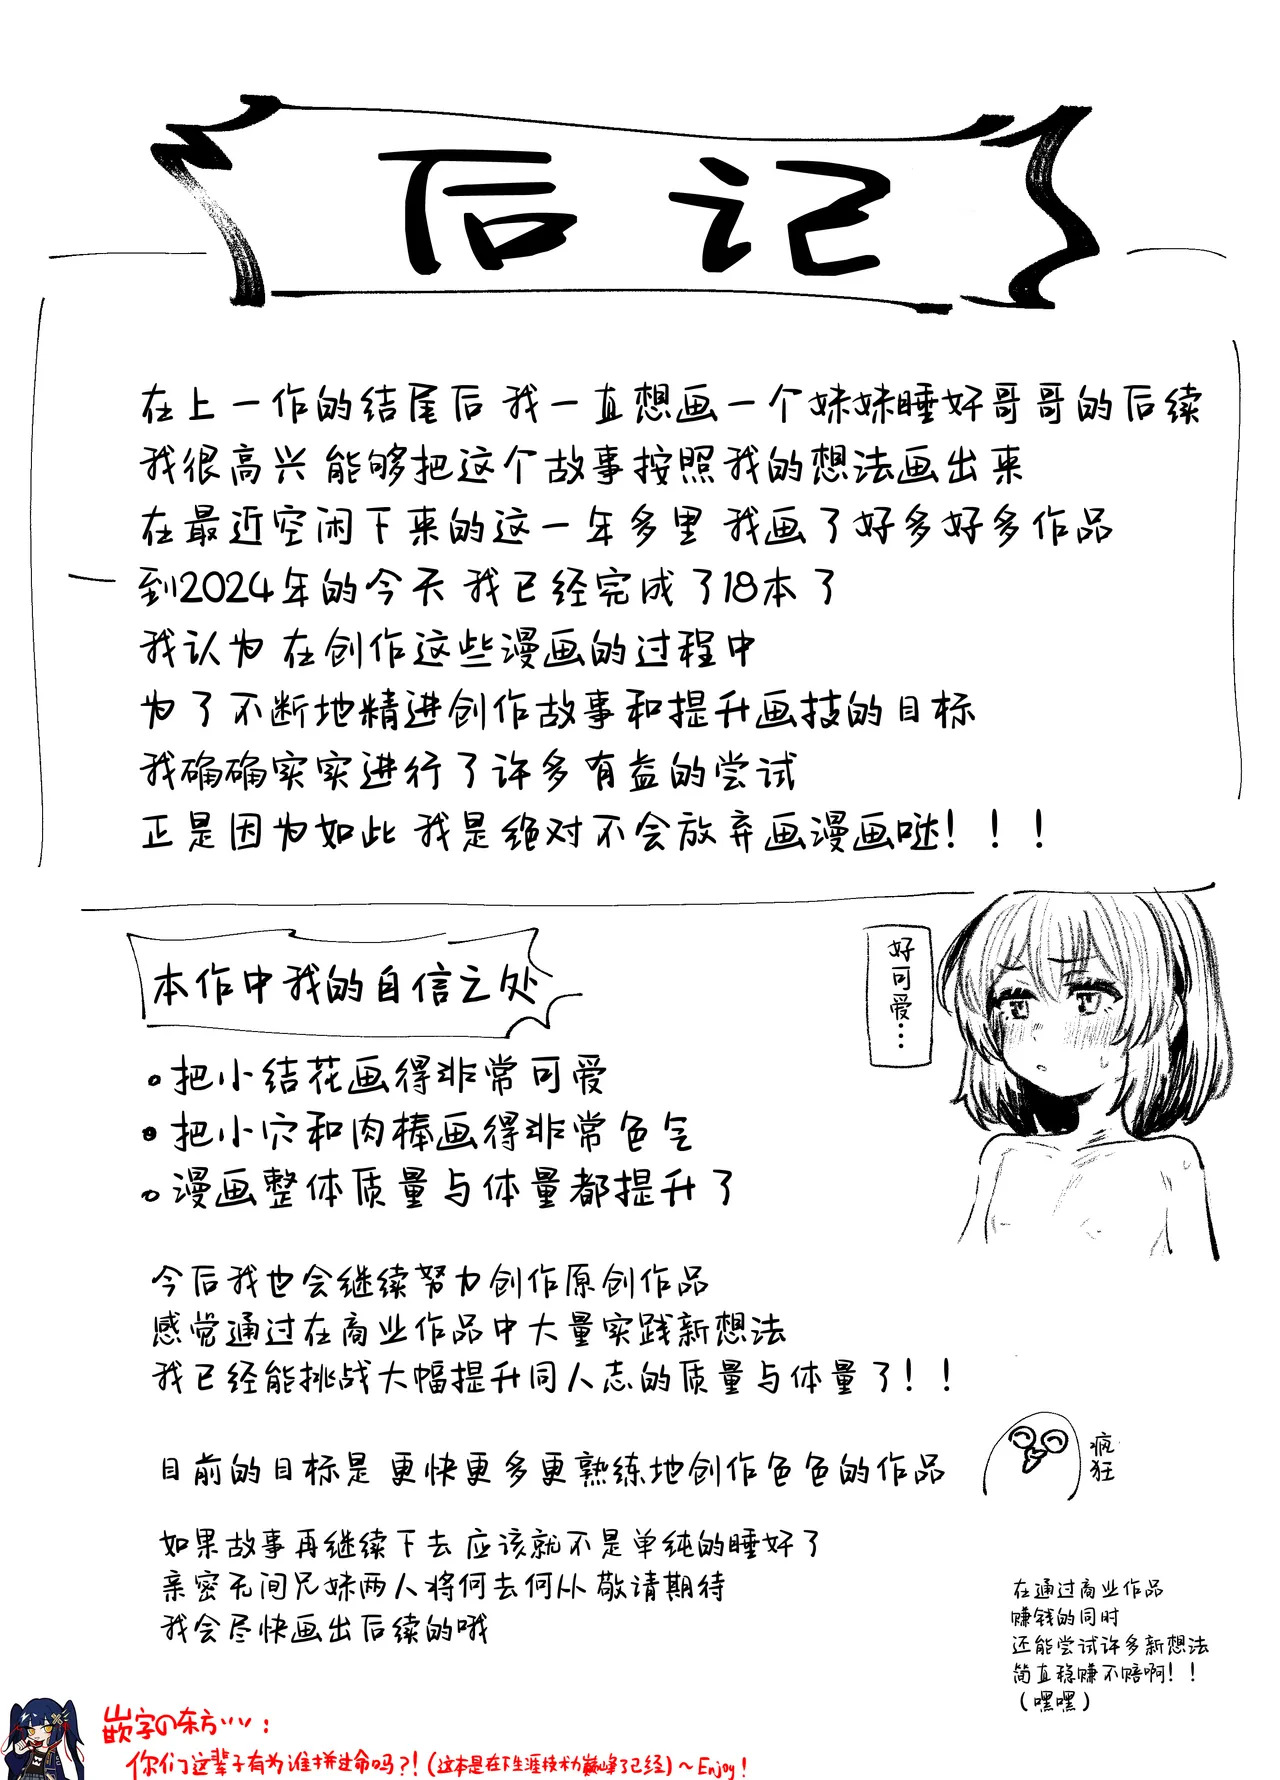 后记
在上一作的结尾后 我一直想画一个妹妹睡奸哥哥的后续
我很高兴 能够把这个故事按照我的想法画出来
在最近空闲下来的这一年多里 我画了好多好多作品
到2024年的今天 我已经完成了18本了
我认为 在创作这些漫画的过程中
为了不断地精进创作故事和提升画技的目标
我确确实实进行了许多有益的尝试
正是因为如此 我是绝对不会放弃画漫画哒！！！
好可爱…
本作中我的自信之处
。把小结花画得非常可爱
。把小穴和肉棒画得非常色气
。漫画整体质量与体量都提升了
今后我也会继续努力创作原创作品
感觉通过在商业作品中大量实践新想法
我已经能挑战大幅提升同人志的质量与体量了！！
目前的目标是 更快更多更熟练地创作色色的作品
疯狂
如果故事再继续下去 应该就不是单纯的睡奸了
亲密无间兄妹两人将何去何从 敬请期待
我会尽快画出后续的哦
在通过商业作品
赚钱的同时
还能尝试许多新想法
简直稳赚不赔啊！！
（嘿嘿）
嵌字の东方ツソ：
你们这辈子有为谁拼过命吗？！（这本是在下生涯技术力巅峰了已经）～Enjoy！